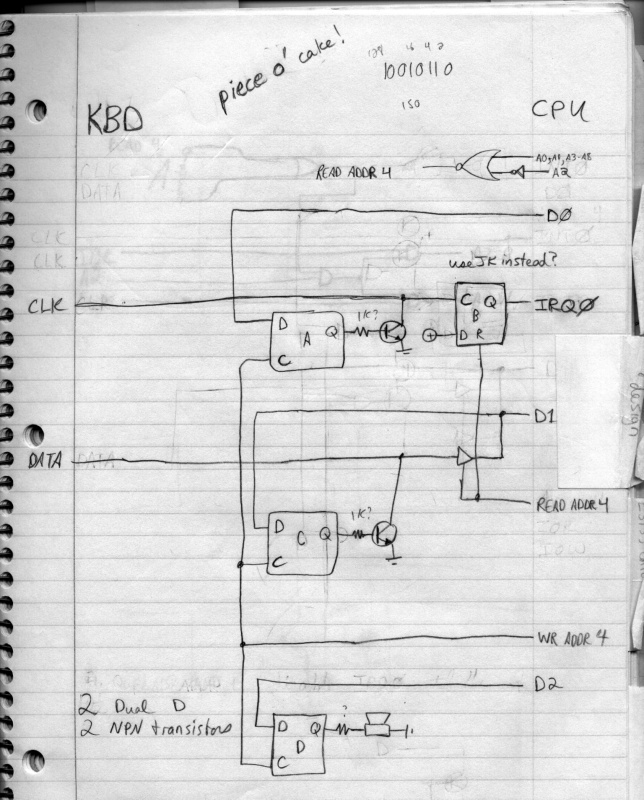 piece o' cake!
128 16 4 2
10010110
150
KBD
CPU
READ ADDR 4
A0, A1, A3-A8
A2
D0
use JK instead?
CLK
C Q
B
D R
IRQ0
D Q
A
C
1K?
D1
DATA
READ ADDR 4
D Q
C
C
1K?
WR ADDR 4
D2
D Q
D
C
?
2 Dual D
2 NPN transistors
design